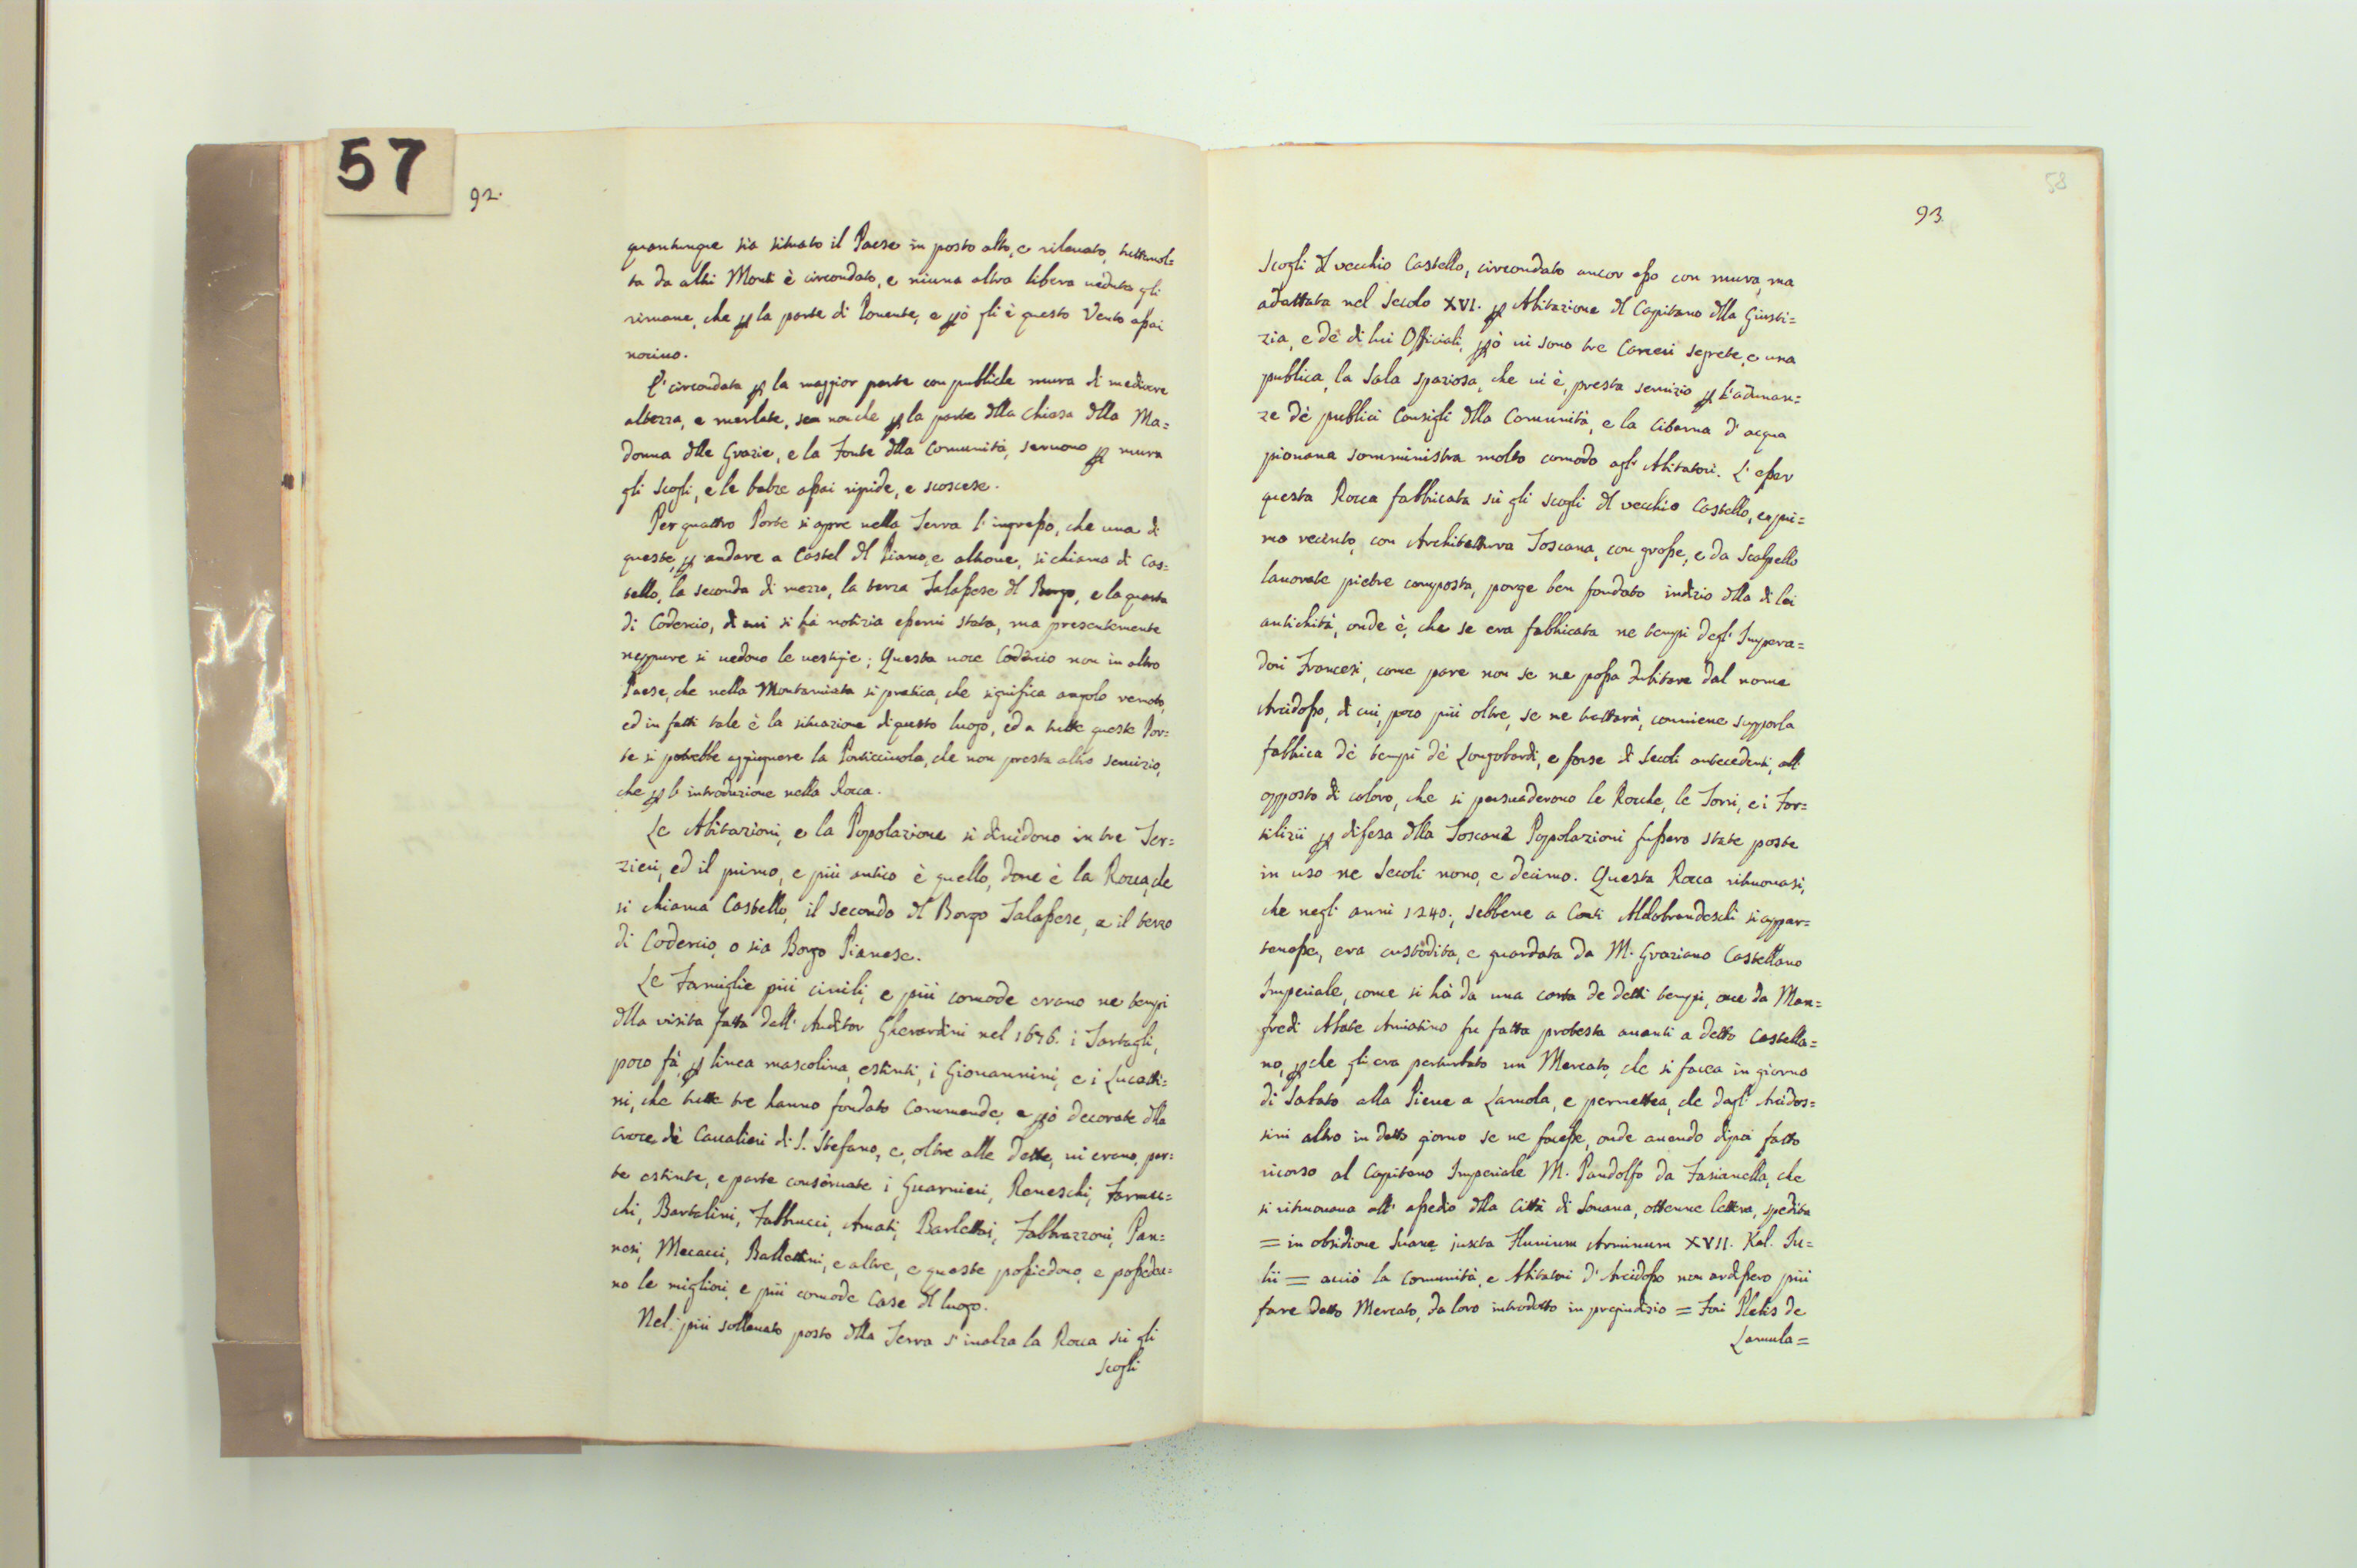 57
92.
quantunque sia situato il Paese in posto alto, e rileuato, tuttauol=
ta da altri Monti è circondato, e niuna altra libera ueduta gli
rimane, che ꝑ la parte di Ponente, e ꝑò gli è questo Vento assai
nociuo.
E' circondata ꝑ la maggior parte con publiche mura di mediocre
altezza, e merlate, se non che ꝑ la parte dlla Chiesa dlla Ma=
donna dlle Grazie, e la Fonte dlla Comunità, seruono ꝑ mura
gli Scogli, e le balze assai ripide, e scoscese.
Per quattro Porte si apre nella Terra l'ingresso, che una di
queste, ꝑ andare a Castel dl Piano, e altroue, si chiama di Cas=
tello, la seconda di mezzo, la terza Talassese dl Borgo, e la quarta
di Codercio, di cui si há notizia esserui stata, ma presentemente
neppure si uedono le uestigie; Questa uoce Codercio non in altro
Paese, che nella Montamiata si pratica, che significa angolo remoto,
ed in fatti tale è la situazione di questo luogo, ed a tutte queste Por=
te si potrebbe aggiugnere la Porticciuola, che non presta altro seruizio,
che ꝑ l'introduzione nella Rocca.
Le Abitazioni, e la Popolazione si diuidono in tre Ter=
zieri, ed il primo, e più antico è quello, doue è la Rocca, che
si chiama Castello, il secondo dl Borgo Talassese, e il terzo
di Codercio, o sia Borgo Pianese.
Le Famiglie più ciuili, e più comode erano ne tempi
dlla visita fatta dall' Auditor Gherardini nel 1676. i Tartagli,
poco fà ꝑ linea mascolina estinti, i Giouannini, e i Lucatti=
ni, che tutte tre hanno fondato Commende, e ꝑò decorate dlla
Croce dè Caualieri di S. Stefano, e, oltre alle dette, ui erano, par=
te estinte, e parte conseruate i Guarnieri, Reneschi, Farmu=
chi, Bartolini, Fabbrucci, Amati, Barlettai, Fabbrazzoni, Pan=
nosi, Mecacci, Ballettini, e altre, e queste possiedono, e possedeu=
no le migliori, e più comode Case dl luogo.
Nel più solleuato posto dlla Terra s'inalza la Rocca sù gli
scogli
58
93.
Scogli dl vecchio Castello, circondato ancor esso con mura, ma
adattata nel Secolo XVI. ꝑ Abitazione dl Capitano dlla Giusti=
zia, e dè di lui Officiali, ꝑò ui sono tre Carceri segrete, e una
publica, la Sala spaziosa, che ui è, presta seruizio ꝑ l'adunan=
ze dè publici Consigli dlla Comunità, e la Citerna d'acqua
piouana somministra molto comodo agl' Abitatori. L'esser
questa Rocca fabbricata sù gli scogli dl vecchio Castello, e pri=
mo recinto, con Architettura Toscana, con grosse, e da Scalpello
lauorate pietre composta, porge ben fondato indizio dlla di lei
antichità, onde è, che se era fabbricata ne tempi degl' Impera=
dori Francesi, come pare non se ne possa dubitare dal nome
Arcidosso, di cui, poco più oltre, se ne trattarà, conuiene supporla
fabbrica dè tempi dè Longobardi, e forse di Secoli antecedenti, all'
opposto di coloro, che si persuaderono le Rocche, le Torri, e i For=
tilizii ꝑ difesa dlla Toscana Popolazioni fussero state poste
in uso ne Secoli nono, e decimo. Questa Rocca ritrouasi,
che negli anni 1240., sebbene a Conti Aldobrandeschi si appar=
tenesse, era custodita, e guardata da M. Graziano Castellano
Imperiale, come si hà da una carta de detti tempi, oue da Man=
fredi Abate Amiatino fu fatta protesta auanti a detto Castella=
no, ꝑche gli era perturbato un Mercato, che si facea in giorno
di Sabato alla Pieue a Lamola, e permettea, che dagl' Arcidos=
sini altro in detto giorno se ne facesse, onde auendo dipoi fatto
ricorso al Capitano Imperiale M. Pandolfo da Fasianella, che
si ritrouaua all' assedio dlla Città di Souana, ottenne lettera, spedita
= in obsidione Suane juxta Fluuium Arminum XVII. Kal. Ju=
lii = acciò la Comunità, e Abitatori d'Arcidosso non ardissero più
fare detto Mercato, da loro introdotto in pregiudizio = Fori Plebis de
Lamula=